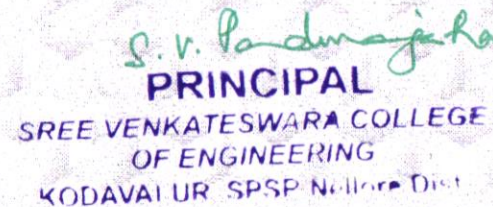 S. V. Padmaja Ra
PRINCIPAL
SREE VENKATESWARA COLLEGE
OF ENGINEERING
KODAVALUR SPSP Nellore Dist